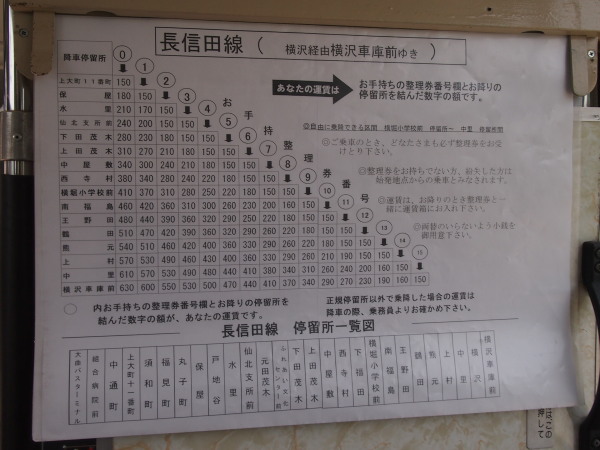 長信田線 ( 横沢経由横沢車庫前ゆき )
降車停留所 0
1
上大町11番町 150 2
保屋 180 150 3
水里 210 170 150 4
仙北支所前 240 200 150 150 5
下田茂木 280 230 180 150 150 6
上田茂木 310 270 210 150 150 150 7
中屋敷 340 300 240 210 180 150 150 8
西寺村 380 340 280 240 210 180 150 150 9
横堀小学校前 410 370 310 280 250 220 180 150 150 10
南福島 460 420 360 320 300 270 230 200 160 150 11
王野田 480 440 390 360 320 290 250 220 180 150 150 12
鶴田 510 470 410 390 350 320 290 260 220 180 150 150 13
熊元 540 510 460 420 400 360 330 290 260 220 180 150 150 14
上村 570 530 490 460 420 390 360 330 290 15
中里 610 570 530 490 410 370 340 150 150
横沢車庫前 630 600 550 530 510 470 440 410 380 340 290 270 230 190 160 150
お手持整理券番号
あなたの運賃は
お手持ちの整理券番号欄とお降りの
停留所を結んだ数字の額です。
◎自由に乗降できる区間 横堀小学校前 停留所〜 中里 停留所間
◎ご乗車のとき、どなたさまも必ず整理券をお受
けとり下さい。
◎整理券をお持ちでない方、紛失した方は
始発地点からの乗車とみなされます。
◎運賃は、お降りのとき整理券と一
緒に運賃箱にお入れ下さい。
◎両替のいらないよう小銭を
御用意下さい。
○ 内お手持ちの整理券番号欄とお降りの停留所を
結んだ数字が、あなたの運賃です。
正規停留所以外で乗降した場合の運賃は
降車の際、乗務員よりお確かめ下さい。
長信田線 停留所一覧図
大曲バスターミナル
総合病院前
中通町
上大町十一番町
須和町
福見町
丸子町
保屋
戸地谷
水里
仙北支所前
元田茂木
ふれあい文化センター前
下田茂木
上田茂木
中屋敷
西寺村
下福田
横堀小学校前
南福島
王野田
鶴田
熊元
上村
中里
横沢
横沢車庫前
はこの
押して